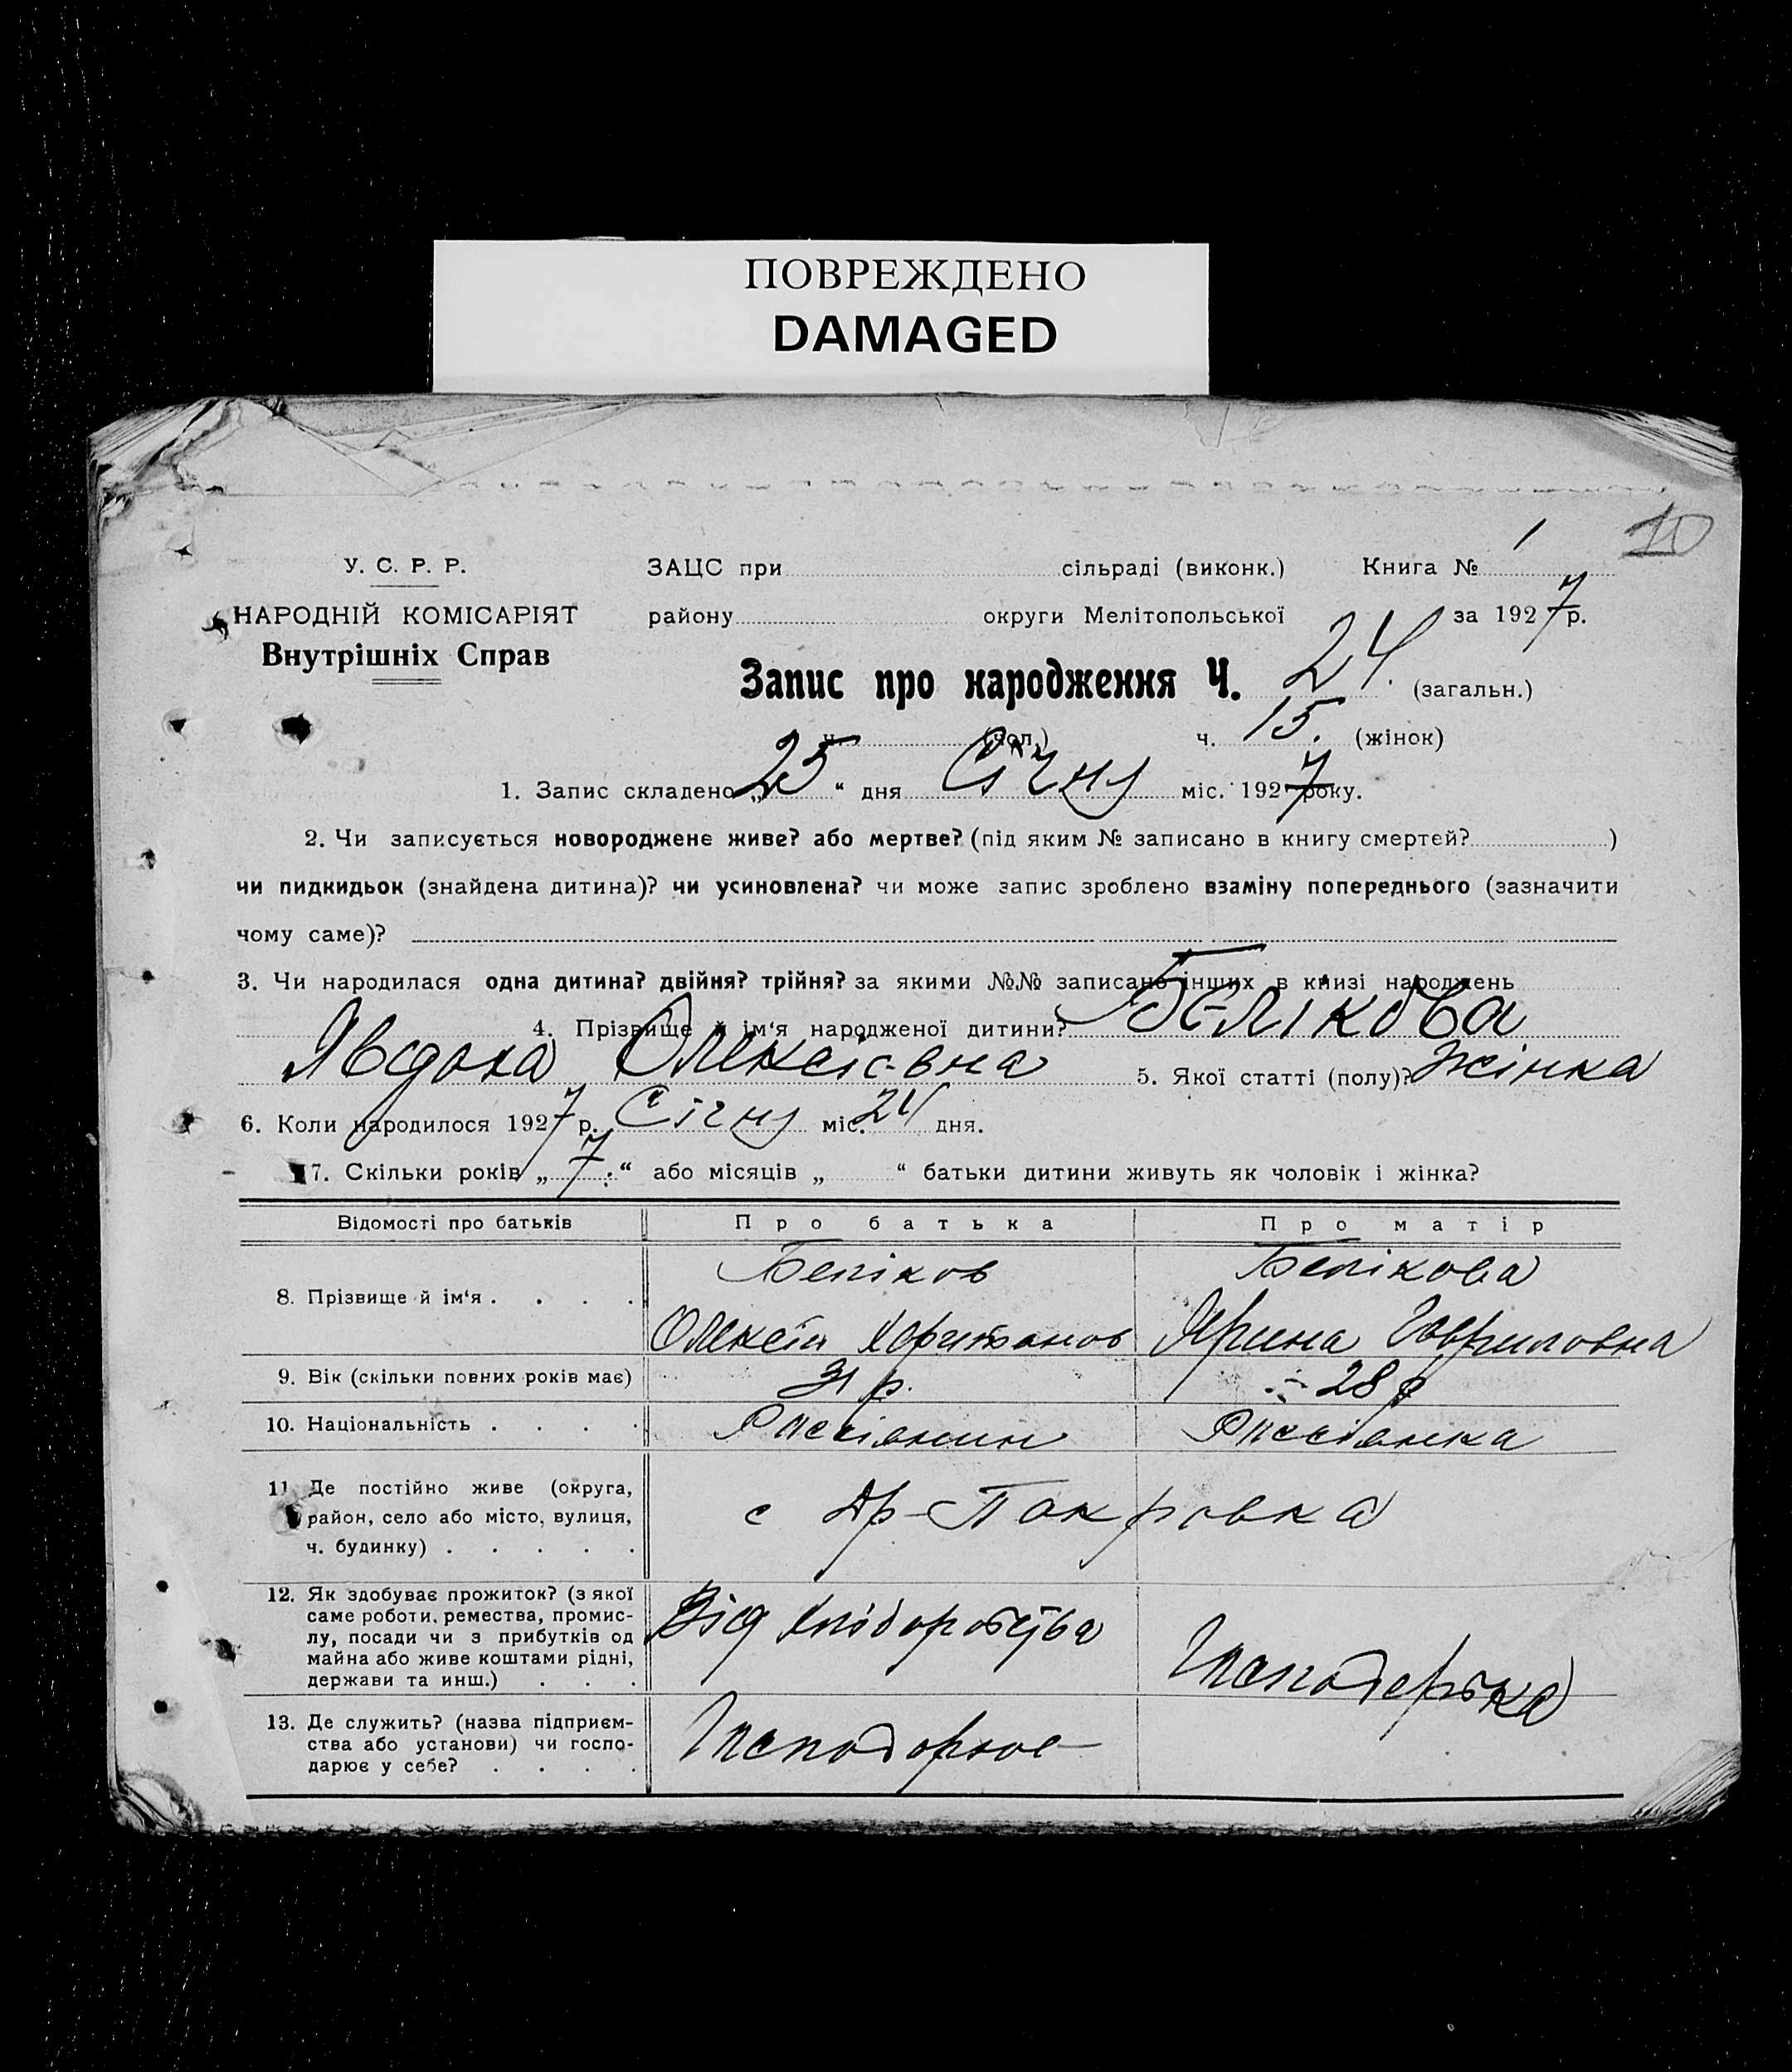 ПОВРЕЖДЕНО
DAMAGED
10
У. С. Р. Р.
НАРОДНІЙ КОМІСАРІЯТ
Внутрішніх Справ
ЗАЦС при сільраді (виконк.) Книга № 1
району округи Мелітопольської за 1927 р.
Запис про народження Ч. 24. (загальн.)
ч. (чол.) ч. 15. (жінок)
1. Запис складено „25“ дня Січня міс. 1927 року.
2. Чи записується новороджене живе? або мертве? (під яким № записано в книгу смертей? )
чи пидкидьок (знайдена дитина)? чи усиновлена? чи може запис зроблено взаміну попереднього (зазначити
чому саме)?
3. Чи народилася одна дитина? двійня? трійня? за якими №№ записано інших в книзі народжень
4. Прізвище й ім‘я народженої дитини? Белікова
Явдоха Олексієвна 5. Якої статті (полу)? Жінка
6. Коли народилося 1927 р. Січня міс. 24 дня.
7. Скільки років „7“ або місяців „ “ батьки дитини живуть як чоловік і жінка?
Відомості про батьків Про батька Про матір
8. Прізвище й ім‘я . . . . Беліков Белікова
Олексій Харитонов Ярина Гавриловна
9. Вік (скільки повних років має) 31 р. 28 р
10. Національність . . . . Россіянин Россіянка
11. Де постійно живе (округа,
район, село або місто, вулиця,
ч. будинку) . . . . .
с Др-Покровка
12. Як здобуває прожиток? (з якої
саме роботи, ремества, промис-
лу, посади чи з прибутків од
майна або живе коштами рідні,
держави та инш.) . . .
Від хліборобства
13. Де служить? (назва підприєм-
ства або установи) чи госпо-
дарює у себе? . . . .